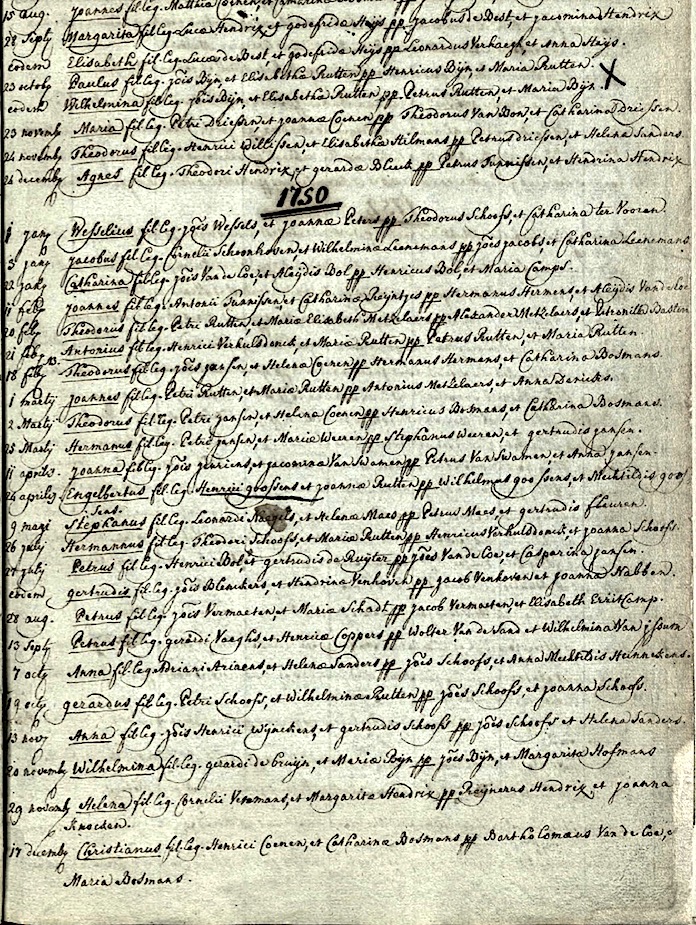 15 aug. Joannes fil. leg. Matthiæ Coenen, et
28 Septb Margarita fil. leg. Lucæ Hendrix, et godefridæ Heijs pp Jacobus de Best, et Jacomina Hendrix
eodem Elisabeth fil. leg. Lucæ de Best et godefridæ Heijs pp Leonardus Verhaegh, et Anna Heijs.
23 octob Paulus fil. leg. jöis Bijn, et Elisabethæ Rutten pp Henricus Bijn, et Maria Rutten.
eodem Wilhelmina fil. leg. jöis Bijn, et Elisabethæ Rutten pp Petrus Rutten, et Maria Bijn. X
23 novemb Maria fil. leg. Petri Driessen, et joannæ Coenen pp Theodorus Van Bon, et Catharina Driessen.
24 novemb Theodorus fil. leg. Henrici Willissen, et Elisabethæ Hilmans pp Petrus driessen, et Helena Sanders
26 decemb Agnes fil. leg. Theodori Hendrix, et gerardæ Bleeck pp Petrus Tunnissen, et Hendrina Hendrix
1750
1 jan Wesselius fil. leg. jöis Wessels, et joannæ Peters pp Theodorus Schoofs, et Catharina ter Vooren.
3 jan jacobus fil. leg. Cornelii Schoonhoven, et Wilhelminæ Leenemans pp jöes jacobs, et Catharina Leenemans
22 jan Catharina fil. leg. jöis Van de Loe, et Aleijdis Bol pp Henricus Bol, et Maria Camps.
11 feb joannes fil. leg. Antonii Tunnissen, et Catharinæ Reijntjes pp Hermanus Hermens, et Aleijdis Van de Loe
20 feb Theodorus fil. leg. Petri Rutten, et Mariæ Elisabeth Metzelaers pp Alexander Metzelaers, et Petronilla Basten
21 feb Antonius fil. leg. Henrici Verhulsdonck, et Mariæ Rutten pp Petrus Rutten, et Maria Rutten.
18 feb Theodorus fil. leg. jöis jansen, et Helenæ Coenen pp Hermanus Hermens, et Catharina Bosmans.
1 martij joannes fil. leg. Petri Rutten, et Mariæ Rutten pp Antonius Metzelaers, et Anna Dericks.
2 Martij Theodorus fil. leg. Petri jansen, et Helenæ Coenen pp Henricus Bosmans, et Catharina Bosmans.
25 Martij Hermanus fil. leg. Petri jansen, et Mariæ Weeren pp Stephanus Weeren, et gertrudis jansen.
11 aprilis joanna fil. leg. jöis gerriens, et jacominæ Van Swamen pp Petrus Van Swamen et Anna jansen.
26 aprilis Engelbertus fil. leg. Henrici goossens et joannæ Rutten pp Wilhelmus goossens, et Mechtildis goossens.
9 maii Stephanus fil. leg. Leonardi, et Helenæ Maes pp Petrus Maes, et gertrudis fleuren.
26 julij Hermannus fil. leg. Theodori Schoofs, et Mariæ Rutten pp Henricus Verhulsdonck, et joanna Schoofs.
27 julij Petrus fil. leg. Henrici Bol, et gertrudis de Ruijter pp jöes Van de Loe, et Casparina jansen.
eodem gertrudis fil. leg. jöis Blenckers, et Hendrina Venhoven pp jacob Venhoven, et joanna Nabben.
28 aug. Petrus fil. leg. jöis Vermaeten, et Mariæ Schadt pp jacob Vermaeten, et Elisabeth
13 Sept Petrus fil. leg. gerardi Vaeghs, et Henricæ Coppers pp Wolter Van de Sand et Wilhelmina Van
7 octb Anna fil. leg. Adriani Ariaens, et Helenæ Sanders pp jöis Schoofs, et Anna Mechtildis
19 octb gerardus fil. leg. Petri Schoofs, et Wilhelminæ Rutten pp jöes Schoofs, et joanna Schoofs.
13 nov Anna fil. leg. jöis Henrici Wijnckens, et gertrudis Schoofs pp jöis Schoofs, et Helena Sanders.
20 novemb Wilhelmina fil. leg. gerardi de bruijn, et Mariæ Bijn pp jöes Bijn, et Margarita Hofmans
29 novemb Helena fil. leg. Cornelii Veremans, et Margaritæ Hendrix pp Reijnerus Hendrix, et joanna
Knocken.
17 decemb Christianus fil. leg. Henrici Coenen, et Catharinæ Bosmans pp Bartholomæus Van de Loe, et
Maria Bosmans.